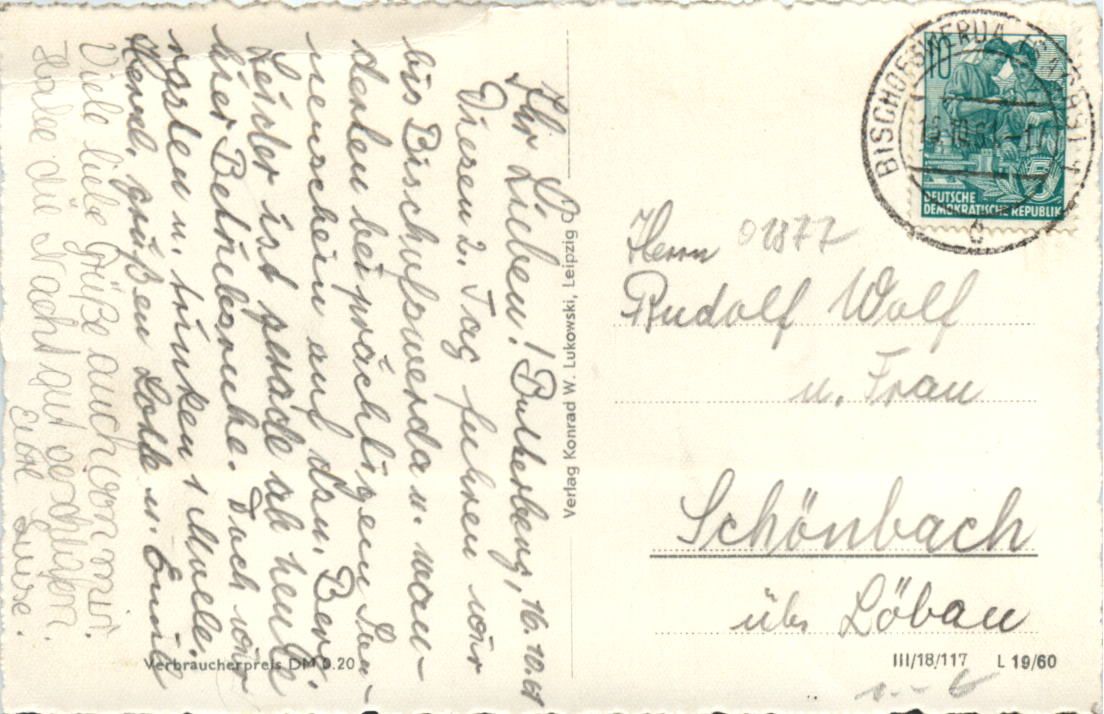 Butterberg, 16.10.61
Ihr Lieben!
Diesen 2. Tag fuhren wir
bis Bischofswerda u. wan-
derten bei prächtigen Son-
nenschein auf den Berg.
Leider ist gerade ab heute
hier Betriebsruhe. Doch wir
rasten u. trinken 1 Molle.
Herzl. grüßen Lotte u. Emil
Viele liebe Grüße auch von mir.
Habe die Nacht gut geschlafen.
Eure Luise.
Verlag Konrad W. Lukowski, Leipzig
Verbraucherpreis DM 0.20
10
5
DEUTSCHE
DEMOKRATISCHE REPUBLIK
BISCHOFSWERDA (SACHS) 1
Herrn 01877
Rudolf Wolf
u. Frau
Schönbach
über Löbau
III/18/117 L 19/60